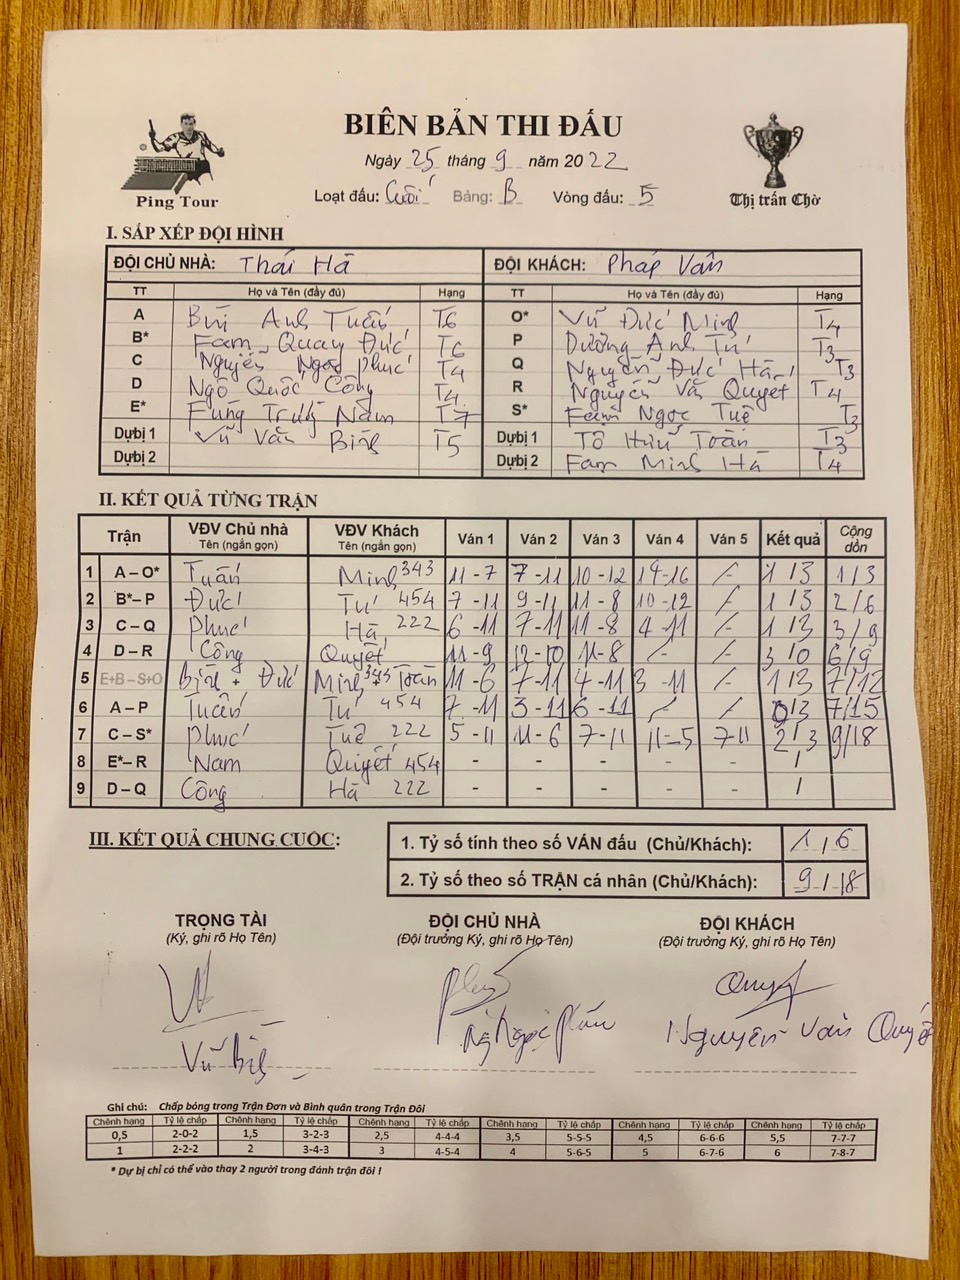 BIÊN BẢN THI ĐẤU
Ngày 25 tháng 9 năm 2022
Ping Tour
Loạt đấu: Cuối Bảng: B Vòng đấu: 5
Thị trấn Chờ
I. SẮP XẾP ĐỘI HÌNH
ĐỘI CHỦ NHÀ: Thái Hà ĐỘI KHÁCH: Pháp Vân
TT Họ và Tên (đầy đủ) Hạng TT Họ và Tên (đầy đủ) Hạng
A Bùi Anh Tuấn T6 O* Vũ Đức Minh T4
B* Fam Quay Đức T6 P Dương Anh Tú T3
C Nguyễn Ngọc Phúc T4 Q Nguyễn Đức Hà T3
D Ngô Quốc Công T4 R Nguyễn Văn Quyết T4
E* Fùng Trung Nam T7 S* Fam Ngọc Tuệ T3
Dựbị 1 Vũ Văn Bình T5 Dựbị 1 Tô Hữu Toàn T3
Dựbị 2 Dựbị 2 Fam Minh Hà T4
II. KẾT QUẢ TỪNG TRẬN
Trận VĐV Chủ nhà Tên (ngắn gọn) VĐV Khách Tên (ngắn gọn) Ván 1 Ván 2 Ván 3 Ván 4 Ván 5 Kết quả Cộng dồn
1 A – O* Tuấn Minh 343 11 - 7 7 - 11 10 - 12 14 - 16 / 1 / 3 1 / 3
2 B*– P Đức Tú 454 7 - 11 9 - 11 11 - 8 10 - 12 / 1 / 3 2 / 6
3 C – Q Phúc Hà 222 6 - 11 7 - 11 11 - 8 4 - 11 / 1 / 3 3 / 9
4 D – R Công Quyết 11 - 9 12 - 10 11 - 8 / / 3 / 0 6 / 9
5 E+B – S+O Bình + Đức Minh 343 + Toàn 11 - 6 7 - 11 4 - 11 3 - 11 / 1 / 3 7 / 12
6 A – P Tuấn Tú 454 7 - 11 3 - 11 6 - 11 / / 0 / 3 7 / 15
7 C – S* Phúc Tuệ 222 5 - 11 11 - 6 7 - 11 11 - 5 7 - 11 2 / 3 9 / 18
8 E*– R Nam Quyết 454 - - - - - /
9 D – Q Công Hà 222 - - - - - /
III. KẾT QUẢ CHUNG CUỘC:
1. Tỷ số tính theo số VÁN đấu (Chủ/Khách): 1 / 6
2. Tỷ số theo số TRẬN cá nhân (Chủ/Khách): 9 / 18
TRỌNG TÀI ĐỘI CHỦ NHÀ ĐỘI KHÁCH
(Ký, ghi rõ Họ Tên) (Đội trưởng Ký, ghi rõ Họ Tên) (Đội trưởng Ký, ghi rõ Họ Tên)
Quyết
Vũ Bình Ng Ngọc Phúc Nguyễn Văn Quyết
Ghi chú: Chấp bóng trong Trận Đơn và Bình quân trong Trận Đôi
Chênh hạng Tỷ lệ chấp Chênh hạng Tỷ lệ chấp Chênh hạng Tỷ lệ chấp Chênh hạng Tỷ lệ chấp Chênh hạng Tỷ lệ chấp Chênh hạng Tỷ lệ chấp
0,5 2-0-2 1,5 3-2-3 2,5 4-4-4 3,5 5-5-5 4,5 6-6-6 5,5 7-7-7
1 2-2-2 2 3-4-3 3 4-5-4 4 5-6-5 5 6-7-6 6 7-8-7
* Dự bị chỉ có thể vào thay 2 người trong đánh trận đôi !